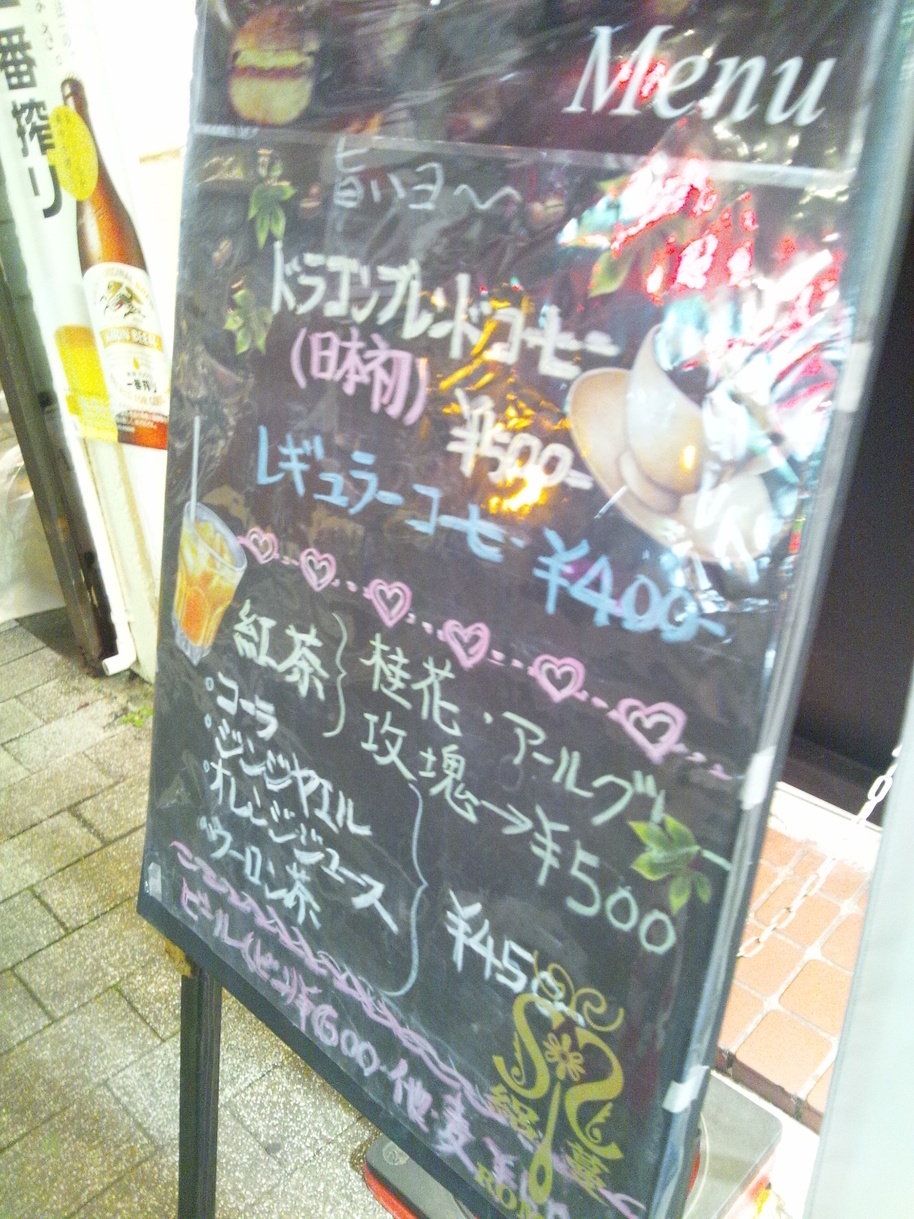 Menu
旨いヨ〜〜
ドラゴンブレンドコーヒー
(日本初)
¥500-
レギュラーコーヒー ¥400-
紅茶} 桂花・アールグレ
攻塊→¥500
。コーラ
。ジンジャエル
。オレンジジュース
。ウーロン茶
¥450
ビール(ビン)¥600・他・
一番搾り
KIRIN BEER
一番搾り